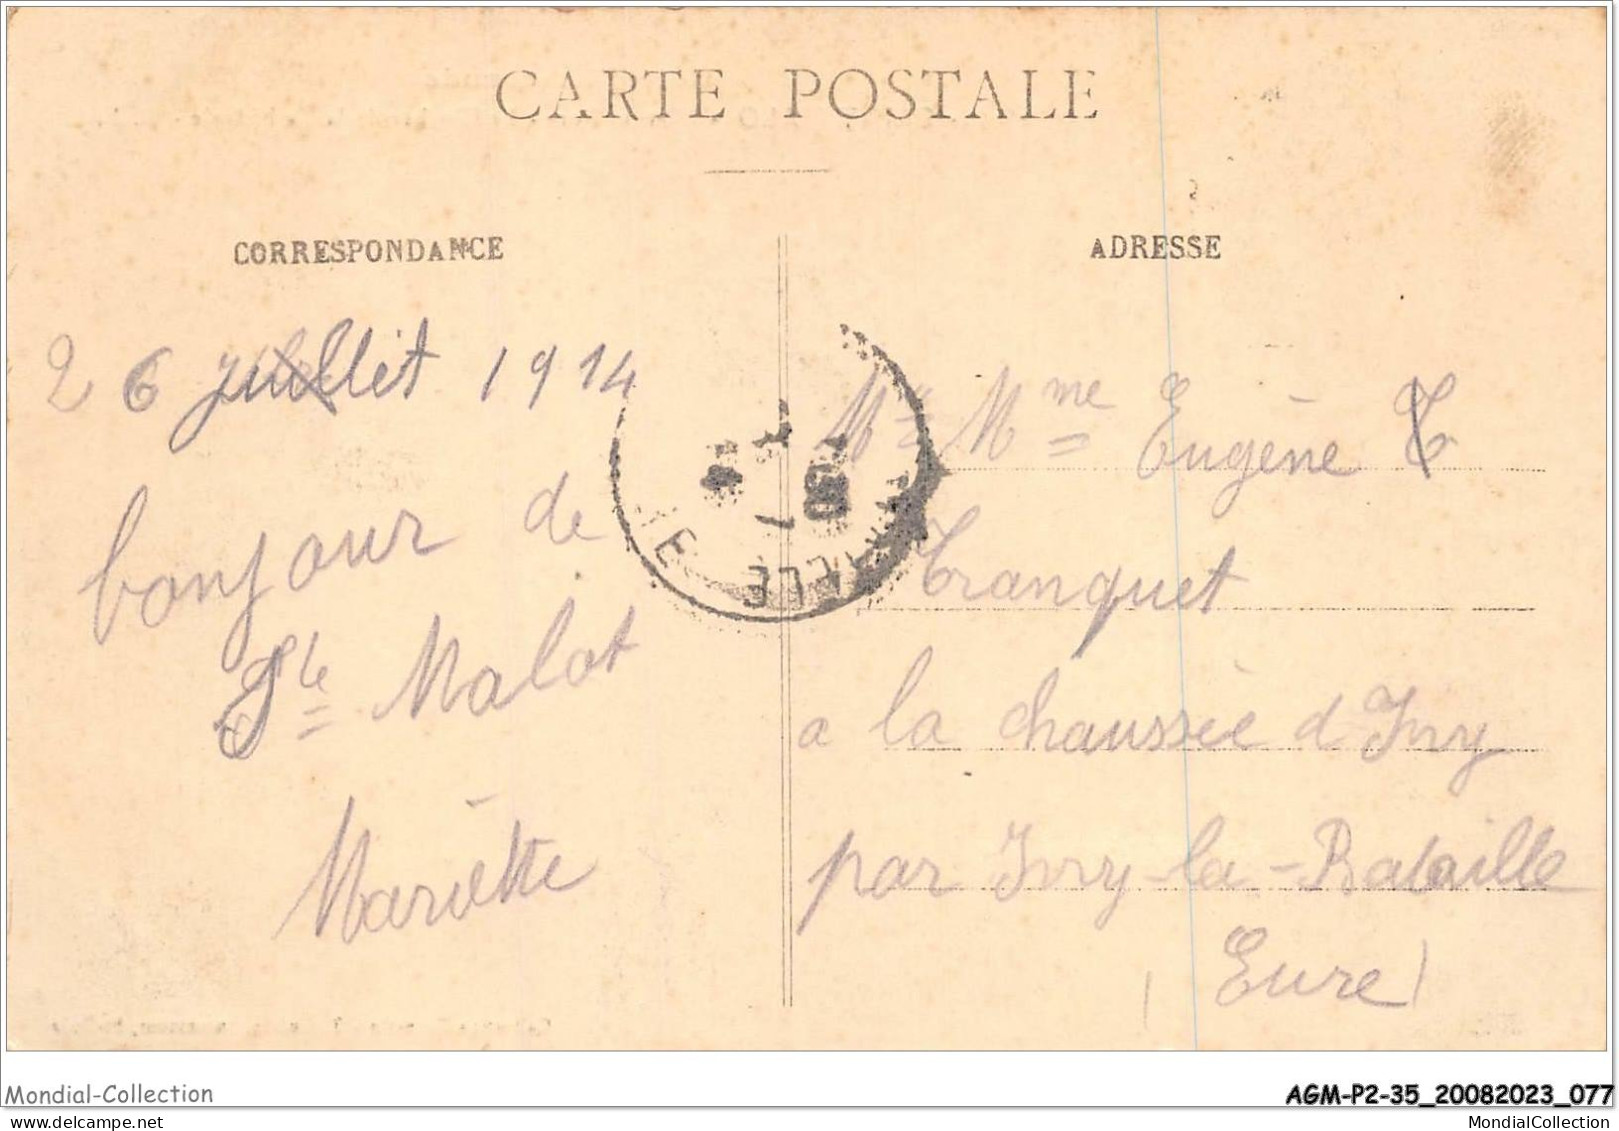 CARTE POSTALE
CORRESPONDANCE
ADRESSE
26 juillet 1914
bonjour de
Ste Malot
Mariette
Mr Mme Eugène T
Tranquet
a la chaussée d Ivry
par Ivry-la-Bataille
(Eure)
Mondial-Collection
AGM-P2-35_20082023_077
MondialCollection